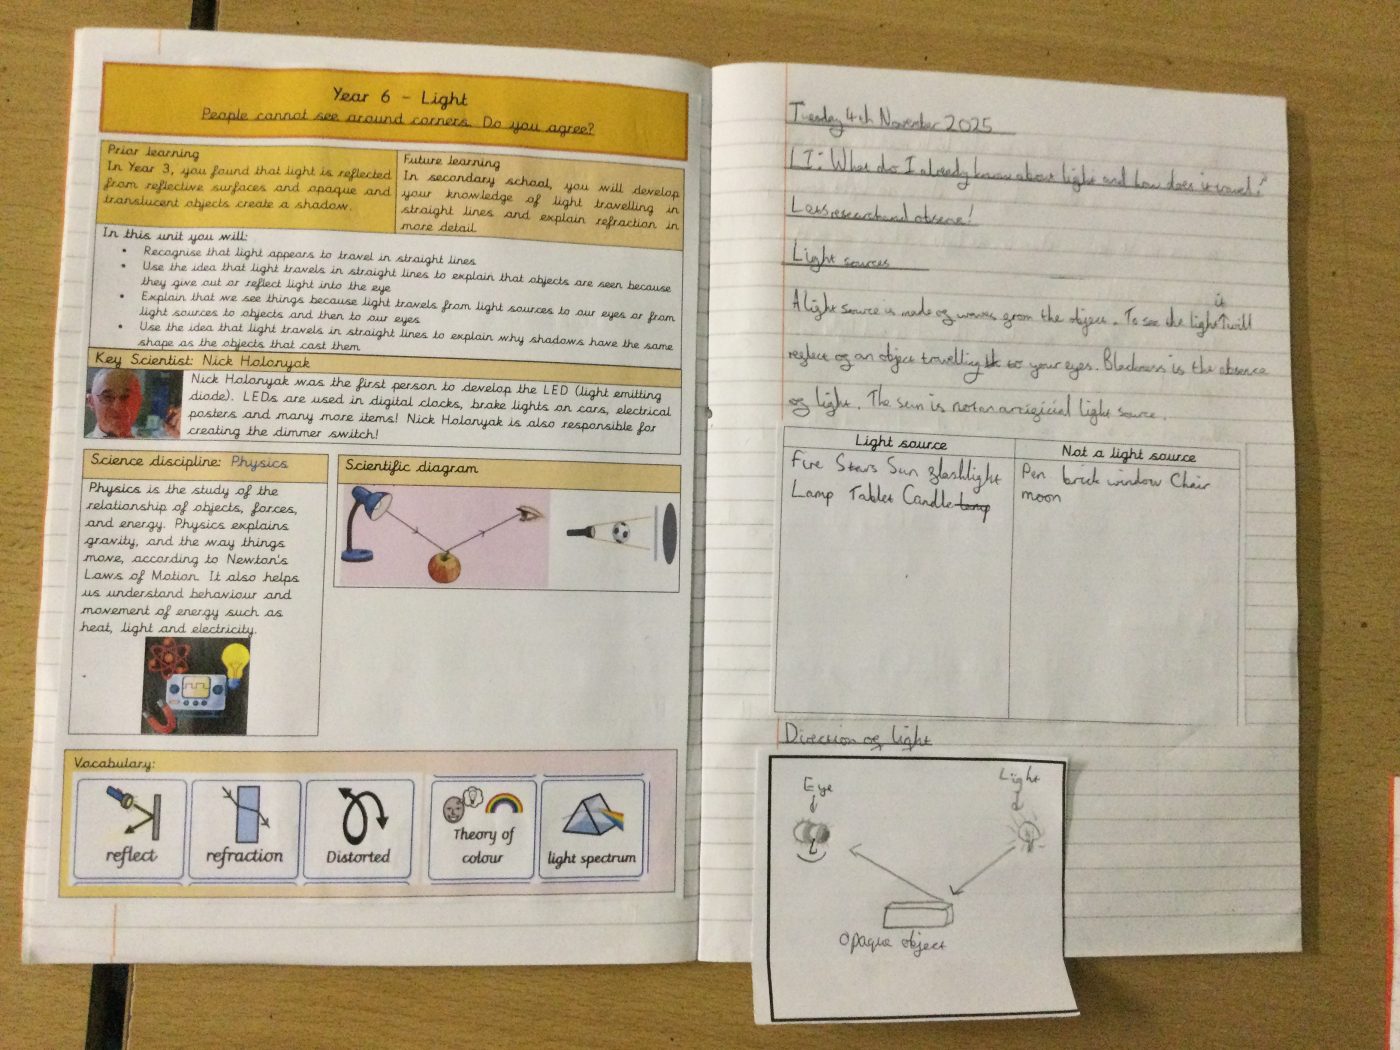 Year 6 - Light
People cannot see around corners. Do you agree?
Prior learning
In Year 3, you found that light is reflected
from reflective surfaces and opaque and
translucent objects create a shadow.
Future learning
In secondary school, you will develop
your knowledge of light travelling in
straight lines and explain refraction in
more detail.
In this unit you will:
• Recognise that light appears to travel in straight lines
• Use the idea that light travels in straight lines to explain that objects are seen because
they give out or reflect light into the eye
• Explain that we see things because light travels from light sources to our eyes or from
light sources to objects and then to our eyes
• Use the idea that light travels in straight lines to explain why shadows have the same
shape as the objects that cast them
Key Scientist: Nick Holonyak
Nick Holonyak was the first person to develop the LED (light emitting
diode). LEDs are used in digital clocks, brake lights on cars, electrical
posters and many more items! Nick Holonyak is also responsible for
creating the dimmer switch!
Science discipline: Physics
Physics is the study of the
relationship of objects, forces,
and energy. Physics explains
gravity, and the way things
move, according to Newton's
Laws of Motion. It also helps
us understand behaviour and
movement of energy such as
heat, light and electricity.
Scientific diagram
Vocabulary:
reflect
refraction
Distorted
Theory of
colour
light spectrum
Tuesday 4th November 2025
LI: What do I already know about light and how does it travel?
Lets research and observe!
Light sources
A light source is made of waves from the object. To see the light it will
reflect of an object travelling to your eyes. Blackness is the absence
of light. The sun is not an artificial light source.
Light source
Fire Stars Sun flashlight
Lamp Tablet Candle lamp
Not a light source
Pen brick window Chair
moon
Direction of light
Eye
Light
opaque object